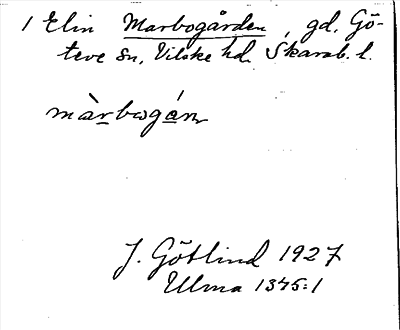 1 Elin Marbogården, gd. Gö-
teve sn, Vilske hd. Skarab. l.
J. Götlind 1927
Ulma 1345:1